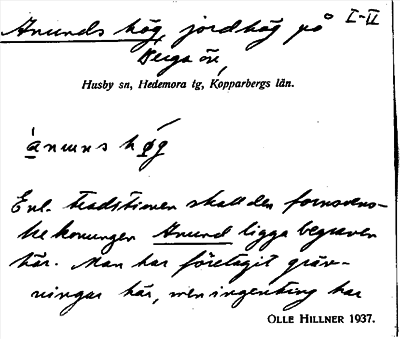 Anunds hög, jordhög på I-II
Berga ör,
Husby sn, Hedemora tg, Kopparbergs län.
ànuns hø̀g
Enl. traditionen skall den fornsvens-
ke konungen Anund ligga begraven
här. Man har företagit gräv-
ningar här, men ingenting har
OLLE HILLNER 1937.